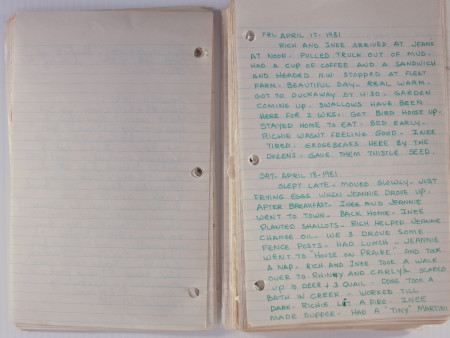 FRI. APRIL 17 - 1981
RICH AND INEE ARRIVED AT JEANS
AT NOON - PULLED TRUCK OUT OF MUD.
HAD A CUP OF COFFEE AND A SANDWICH
AND HEADED N.W. STOPPED AT FLEET
FARM - BEAUTIFUL DAY - REAL WARM -
GOT TO DUCKAWAY AT 4:30 - GARDEN
COMING UP - SWALLOWS HAVE BEEN
HERE FOR 2 WKS. GOT BIRD HOUSE UP -
STAYED HOME TO EAT - BED EARLY -
RICHIE WASN'T FEELING GOOD - INEE
TIRED. GROSEBEAKS HERE BY THE
DOZENS - GAVE THEM THISTLE SEED.
SAT - APRIL 18 - 1981
SLEPT LATE - MOVED SLOWLY - JUST
FRYING EGGS WHEN JEANNIE DROVE UP -
AFTER BREAKFAST. INEE AND JEANNIE
WENT TO TOWN - BACK HOME - INEE
PLANTED SHALLOTS - RICH HELPED JEANNIE
CHANGE OIL - WE 3 DROVE SOME
FENCE POSTS - HAD LUNCH - JEANNIE
WENT TO "HOUSE ON PRAIRE" AND TOOK
A NAP - RICH AND INEE TOOK A WALK
OVER TO RHINEY AND CARLYS SCARED
UP 3 DEER + 3 QUAIL - DOGS TOOK A
BATH IN CREEK - WORKED TILL
DARK - RICHIE LIT A FIRE - INEE
MADE SUPPER - HAD A "TINY" MARTINI